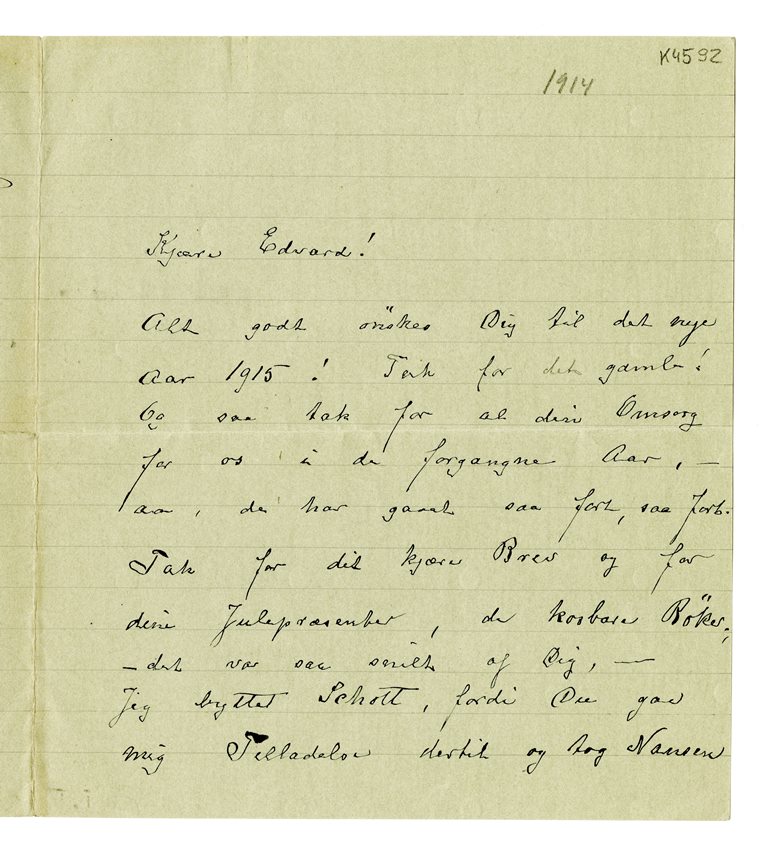 K4592
1914
Kjære Edvard!
Alt godt önskes Dig til det nye
Aar 1915! Tak for det gamle!
Og saa tak for al din Omsorg
for os i de forgangne Aar, —
aa, de har gaaet saa fort, saa fort.
Tak for dit kjære Brev og for
dine Julepræsenter, de kosbare Böker,
— det var saa snilt af Dig, —
Jeg byttet Schott, fordi Du gav
mig Tilladelse dertil og tog Nansen